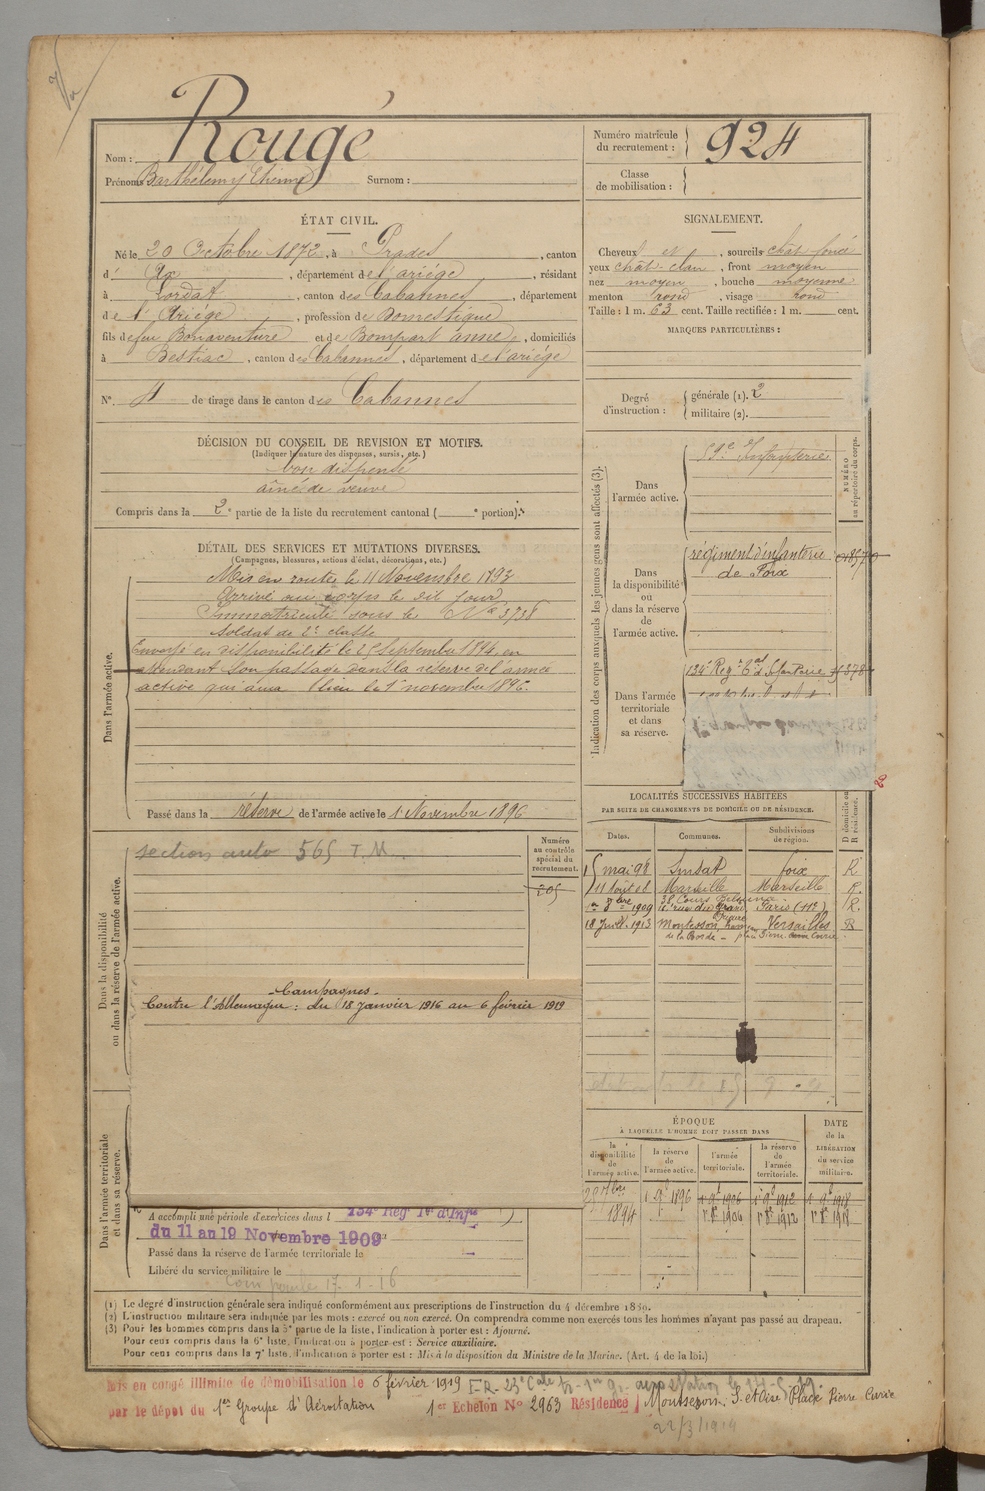 Nom : Rougé
Prénoms Barthélemy Etienne Surnom :
Numéro matricule du recrutement : 924
Classe de mobilisation :
ÉTAT CIVIL.
Né le 20 Octobre 1872, à Prades, canton
d' Ax, département de l'ariége, résidant
à Lordat, canton des Cabannes, département
de l'Ariége, profession de Domestique
fils de feu Bonaventure et de Bompart anne, domiciliés
à Bestiac, canton des Cabannes, département de l'ariége
N° 4 de tirage dans le canton des Cabannes
SIGNALEMENT.
Cheveux et, sourcils chât foncé
yeux chât clair, front moyen
nez moyen, bouche moyenne
menton rond, visage rond
Taille : 1 m. 63 cent. Taille rectifiée : 1 m. cent.
MARQUES PARTICULIÈRES :
Degré d'instruction : générale (1). 2
militaire (2).
DÉCISION DU CONSEIL DE REVISION ET MOTIFS.
(Indiquer la nature des dispenses, sursis, etc.)
bon dispensé
aîné de veuve
Compris dans la 2e partie de la liste du recrutement cantonal ( e portion).
DÉTAIL DES SERVICES ET MUTATIONS DIVERSES.
(Campagnes, blessures, actions d'éclat, décorations, etc.)
Dans l'armée active.
Mis en route le 11 Novembre 1893
Arrivé au corps le dit jour
Immatriculé sous le N° 3738
Soldat de 2e classe
Envoyé en disponibilité le 25 Septembre 1894, en
attendant son passage dans la réserve de l'armée
active qui aura lieu le 1er novembre 1896.
Passé dans la réserve de l'armée active le 1er Novembre 1896
Indication des corps auxquels les jeunes gens sont affectés (3).
NUMÉRO au répertoire du corps.
Dans l'armée active.
59e Infanterie
Dans la disponibilité ou dans la réserve de l'armée active.
régiment d'infanterie
de Foix
Dans l'armée territoriale et dans sa réserve.
134e Régt Cal d'Infanterie
Dans la disponibilité ou dans la réserve de l'armée active.
section auto 565 T.M.
Numéro au contrôle spécial du recrutement.
205
Campagnes
Contre l'Allemagne : du 18 janvier 1916 au 6 février 1919
LOCALITÉS SUCCESSIVES HABITÉES
PAR SUITE DE CHANGEMENTS DE DOMICILE OU DE RÉSIDENCE.
Dates. Communes. Subdivisions de région. D domicile ou R résidence.
15 mai 98 Sinsat foix R
11 août 01 Marseille Marseille R.
38 Cours Belsunce
1er 8bre 1909 Paris R.
18 Juill. 1913 Montesson, Versailles R
de la Borde - place Pierre Curie.
ÉPOQUE
À LAQUELLE L'HOMME DOIT PASSER DANS
la disponibilité de l'armée active. la réserve de l'armée active. l'armée territoriale. la réserve de l'armée territoriale.
DATE de la LIBÉRATION du service militaire.
1894 1896 1906 1912 1918
1906 1912 1918
Dans l'armée territoriale et dans sa réserve.
A accompli une période d'exercices dans l 134e Rég Ter d'Infie
du 11 au 19 Novembre 1909
Passé dans la réserve de l'armée territoriale le
Libéré du service militaire le
17-1-16
(1) Le degré d'instruction générale sera indiqué conformément aux prescriptions de l'instruction du 4 décembre 1889.
(2) L'instruction militaire sera indiquée par les mots : exercé ou non exercé. On comprendra comme non exercés tous les hommes n'ayant pas passé au drapeau.
(3) Pour les hommes compris dans la 5e partie de la liste, l'indication à porter est : Ajourné.
Pour ceux compris dans la 6e liste, l'indication à porter est : Service auxiliaire.
Pour ceux compris dans la 7e liste, l'indication à porter est : Mis à la disposition du Ministre de la Marine. (Art. 4 de la loi.)
Mis en congé illimité de démobilisation le 6 février 1919
par le dépôt du 1er Groupe d'Aérostation 1er Echelon N° 2963 Résidence Montesson, S. et Oise, Place Pierre Curie
22/3/1919